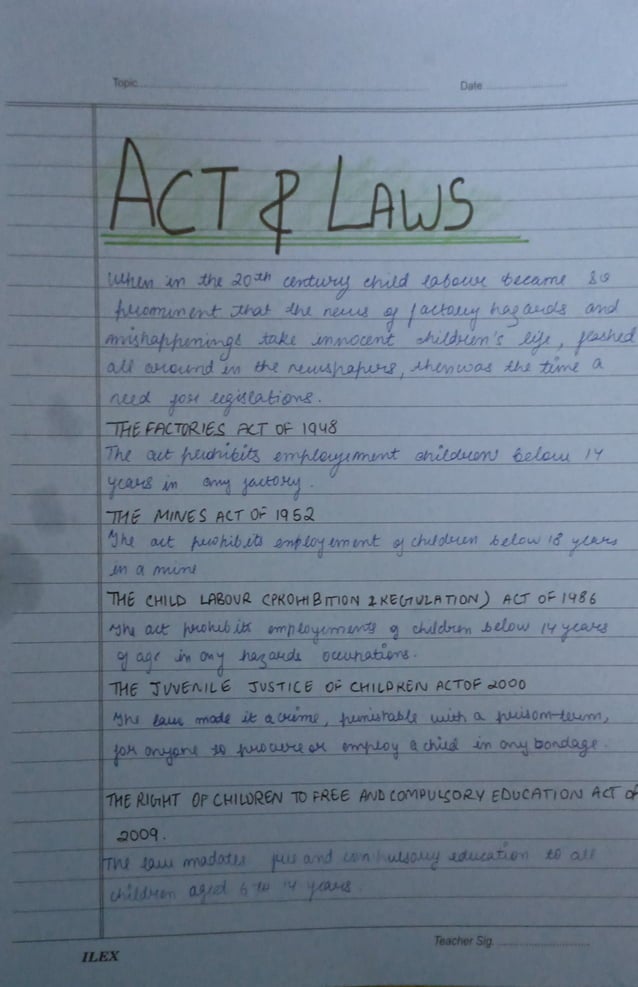 Topic
Date
ACT & LAWS
When in the 20th century child labour became so
prominent that the news of factory hazards and
mishappenings take innocent children's life, flashed
all around in the newspapers, then was the time a
need for legislations.
THE FACTORIES ACT OF 1948
The act prohibits employement children below 14
years in any factory.
THE MINES ACT OF 1952
The act prohibits employement of children below 18 years
in a mine
THE CHILD LABOUR (PROHIBITION & REGTULATION) ACT OF 1986
The act prohibits employements of children below 14 years
of age in any hazards occupations.
THE JUVENILE JUSTICE OF CHILDREN ACT OF 2000
The law made it a crime, punishable with a prison-term,
for anyone to procure or employ a child in any bondage.
THE RIGHT OF CHILDREN TO FREE AND COMPULSORY EDUCATION ACT OF
2009.
The law madates free and compulsory education to all
children aged 6 to 14 years.
Teacher Sig.
ILEX